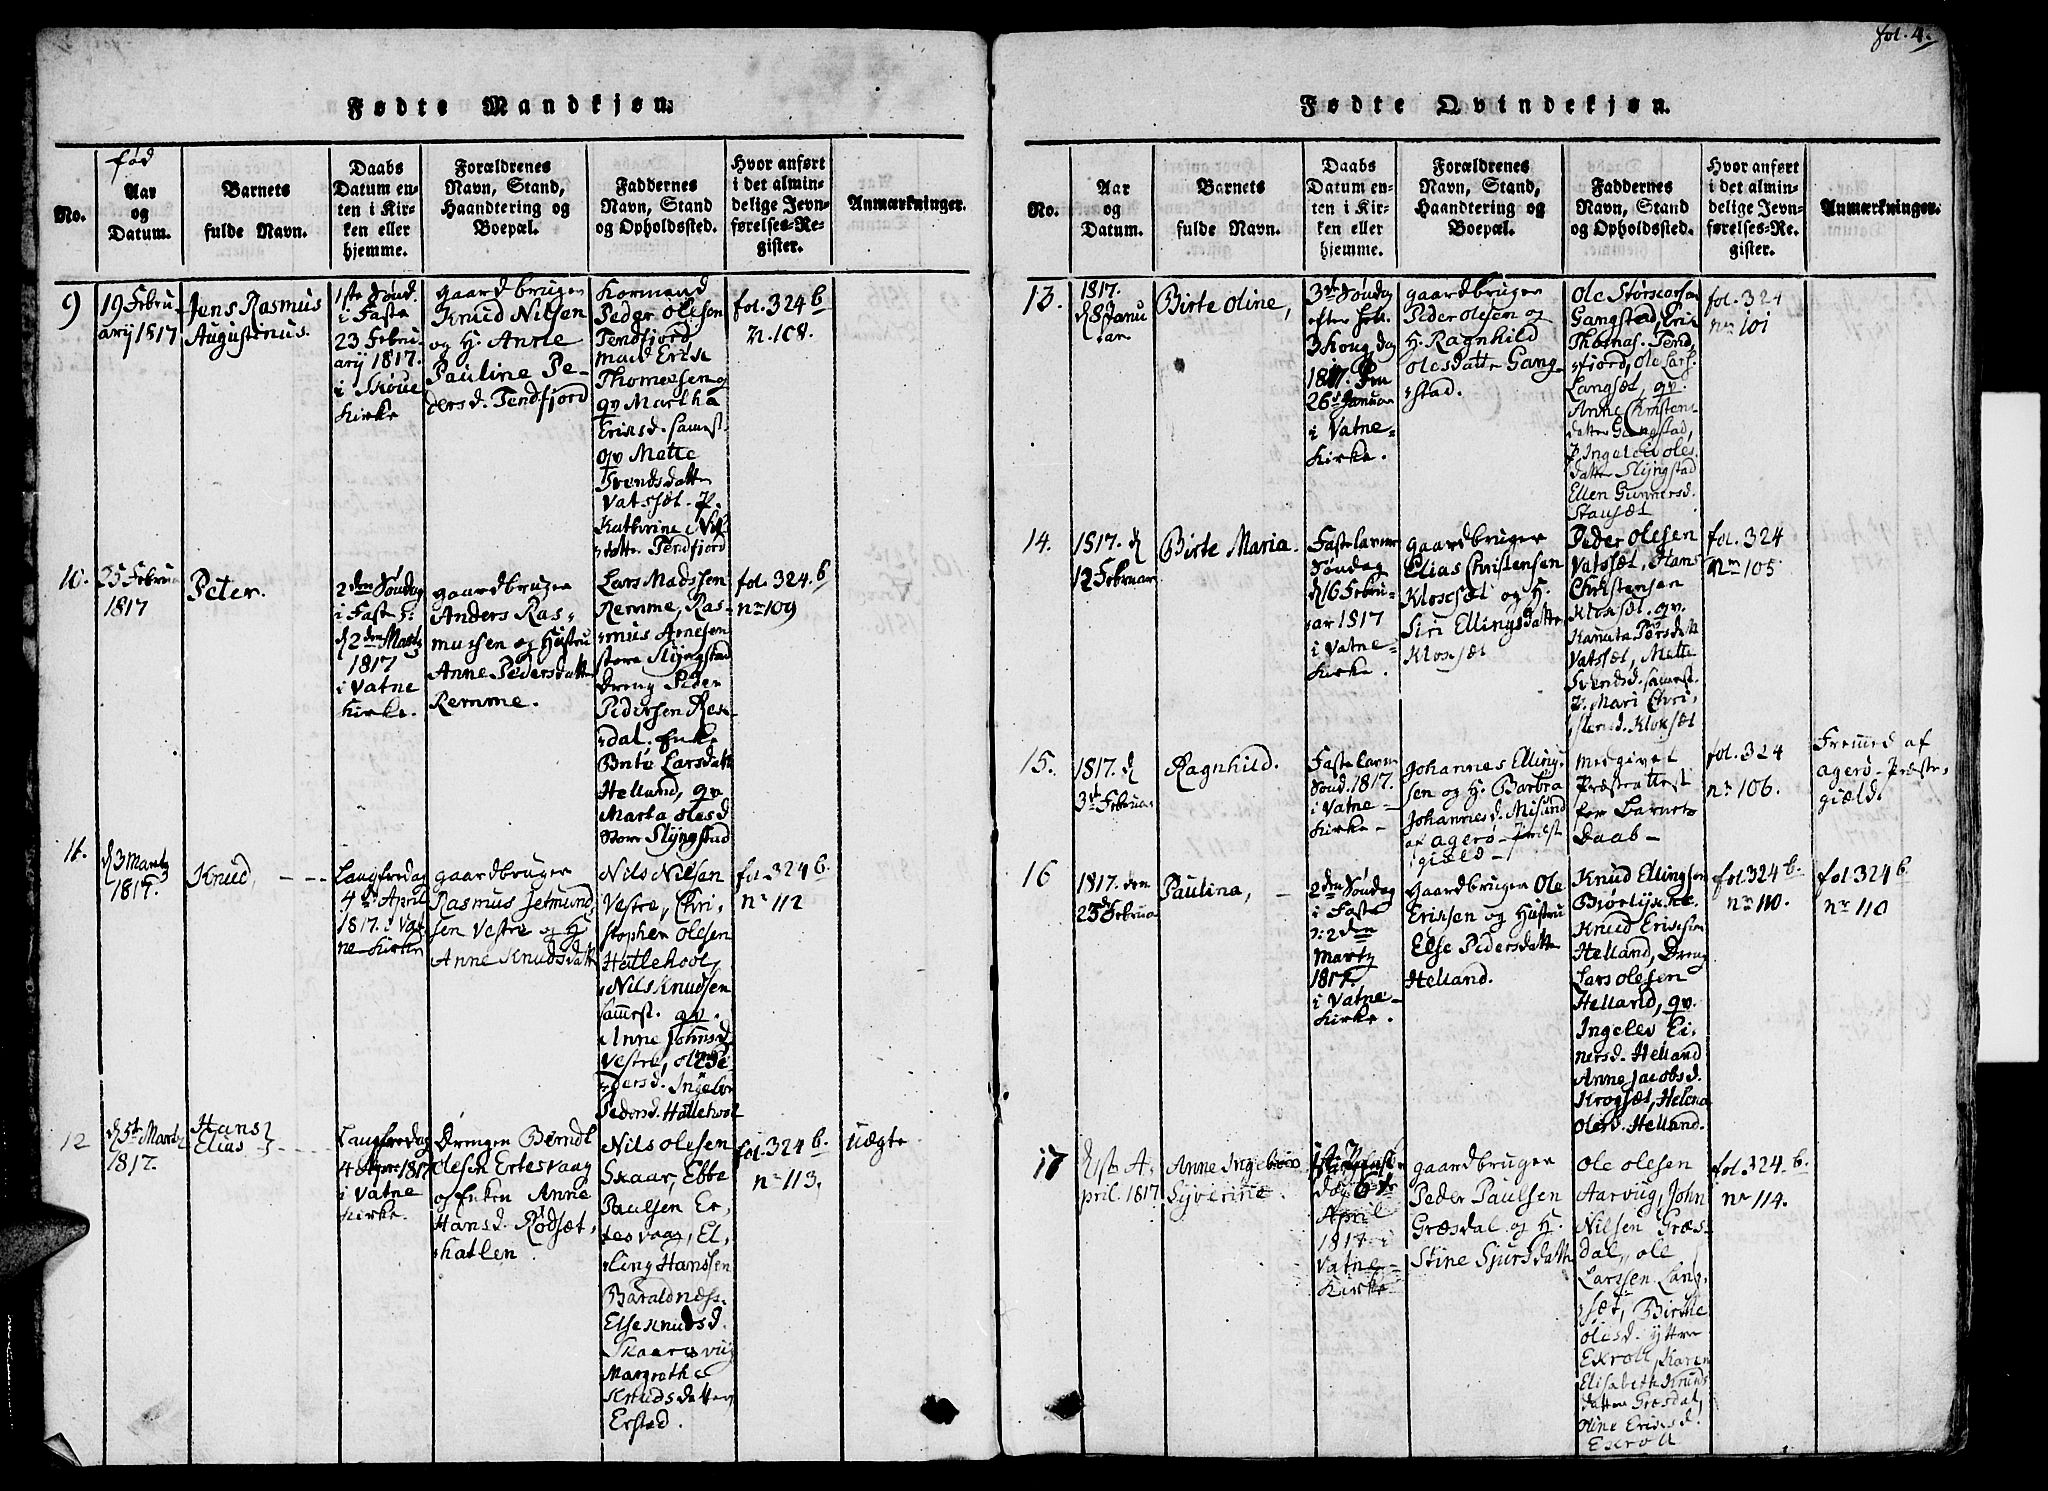 fol. 4.
Fødte Mandkjøn.
fød
No.
Aar
og
Datum.
Barnets
fulde Navn.
Daabs
Datum en-
ten i Kir-
ken eller
hjemme.
Forældrenes
Navn, Stand,
Haandtering og
Boepæl.
Faddernes
Navn, Stand
og Opholdssted.
Hvor anført
i det almin-
delige Jevn-
førelses-Re-
gister.
Anmærkninger.
9)
19 Febru
arij 1817
Jens Rasmus
Augustinus.
1ste Sønd.
i Faste
23 Febru
arij 1817.
i Skoue
Kirke
gaardbruger
Knud Nilsen
og H. Anne
Pauline Pe-
dersd. Tendfjord
Kormand
Peder Olesen
Tendfjord
mand Erik
Thomesen og
qv Martha
Eriksd. samest.
qv Mette
Svendsdatter
Vatsæt. P.
Kathrine Nils
datter Tendfjord
fol. 324 b
N. 108.
10.
25 Februa
1817
Peter.
2den Søndag
i Faste :
d 2den Marty
1817
i Vatne
Kirke.
gaardbruger
Anders Ras-
mussen og Hustru
Anne Pedersdatter
Remme.
Lars Madssen
Remme, Ras-
mus Arnesen
store Slyngstad
Dreng Peder
Pedersen Rek-
dal. Enke
Brite Larsdatt
Helland, qv
Marta olesd
Store Slyngstad
fol. 324. b
nr 109
11.
d 3 Marty
1817.
Knud,
Langfredag
4de April
1817. i Vat
ne Kirke
gaardbruger
Rasmus Jetmund-
sen Vestre og H:
Anne Knudsdatt
Nils Nilsen
Vestre, Chri-
stopher olesen
Hellehool,
Nils Knudsen
samest. qv.
Anne Johnsd
Vestre, oline Pe-
dersd. Ingebor
Pedersd. Hallehool
fol. 324 b.
Nr 112
12
d 5te Marty
1817.
Hans
Elias
Langfredag
4 April 1817
i Vatne
Kirke.
Drengen Berndt
olesen Ertesvaag
og Enken Anne
Hansd. Rødsæt-
hatlen.
Nils olesen
Skaar, Ebbe
Paulsen Er-
tesvaag, El-
ling Hanssen
Baraldnæs.
Else Knudsd.
Skaarsvug
Margrethe
Knudsdatter
Erstad.
fol. 324 b.
nr 113.
Uægte
Fødte Qvindekjøn.
No.
Aar
og
Datum.
Barnets
fulde Navn.
Daabs
Datum en-
ten i Kir-
ken eller
hjemme.
Forældrenes
Navn, Stand,
Haandtering og
Boepæl.
Faddernes
Navn, Stand
og Opholdssted.
Hvor anført
i det almin-
delige Jevn-
førelses-Re-
gister.
Anmærkninger.
13.
1817.
d 8 Janu
ar
Birte Oline,
3de Søndag
efter hell.
3 Kong. dag
1817. Den
26de Janua
i Vatne-
Kirke.
gaardbruger
Peder olesen og
H. Ragnhild
olesdatter Gang-
stad.
Ole
Gangstad, Eric
Thomas. Tend-
fjord, Ole Lars.
Langsæt, qv.
Anne Christens-
datter Gangstad,
P. Ingeleiv oles
datter Slyngstad
Ellen Gunnersd.
Stausæt
fol. 324
nr 101
14.
1817. d
12 Februar
Birte Maria.
Fastelavns
Søndag
d 16 Febru-
ar 1817
i Vatne-
Kirke.
gaardbruger
Elias Christensen
Kloksæt og H.
Siri Ellingsdatter
Kloksæt
Peder olesen
Vatsæt, Hans
Christensen
Kloksæt. qv.
Kanuta Persdatt
Vatsæt, Mette
Svendsd. samest.
P. Mari Chri-
stensd. Kloksæt
fol. 324
Nr 105
15.
1817. d
3de Februar
Ragnhild.
Fastelavn
Sønd. 1817.
i Vatne-
Kirke-
Johannes Elling-
sen og H. Barbra
Johannesd. Misund
af agerø-Prest
gield-
medgivet
Præsteattest
for Barnets
Daab-
fol. 324
nr 106.
Fremed af
agerø-Præste-
gield.
16
1817. den
25de Februar
Paulina,
2den Søndag
i Faste
: 2den
Marty
1817.
i Vatne-
Kirke.
gaardbruger Ole
Ericksen og Hustru
Else Pedersdatter
Helland.
Knud Ellingsen
Biørlykke.
Knud Ericksen
Helland, Dreng
Lars olesen
Helland, qv.
Ingelev Ei-
nersd. Helland
Anne Jacobsd.
Krogsæt, Helena
olesd. Helland.
fol. 324 b.
nr 110.
fol 324 b
nr 110
17
d 1ste A-
pril. 1817
Anne Ingeborg
Syverine.
dag 6te
April
1817 i
Vatne-
Kirke
gaardbruger
Peder Paulsen
Græsdal og H.
Stine Sjursdatter
Ole olesen
Aarvug, John
Nilsen Græs-
dal, ole
Larssen Lang-
sæt, Birthe
olesd. yttre
Exroll, Karen
Elisabeth Knuds
datter Græsdal,
oline Ericksd.
Exroll
fol. 324. b.
nr 114.